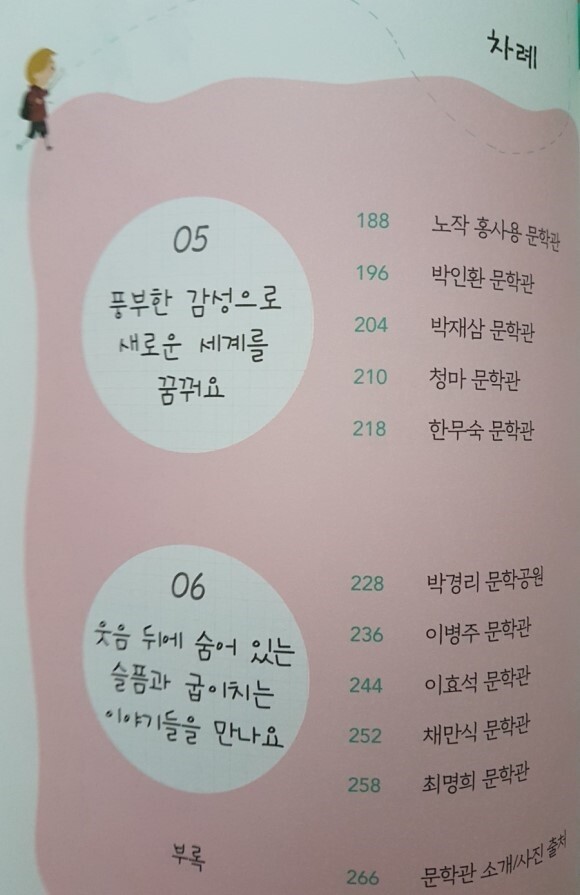 차례
05
풍부한 감성으로
새로운 세계를
꿈꿔요
188 노작 홍사용 문학관
196 박인환 문학관
204 박재삼 문학관
210 청마 문학관
218 한무숙 문학관
06
웃음 뒤에 숨어 있는
슬픔과 굽이치는
이야기들을 만나요
228 박경리 문학공원
236 이병주 문학관
244 이효석 문학관
252 채만식 문학관
258 최명희 문학관
부록
266 문학관 소개/사진 출처